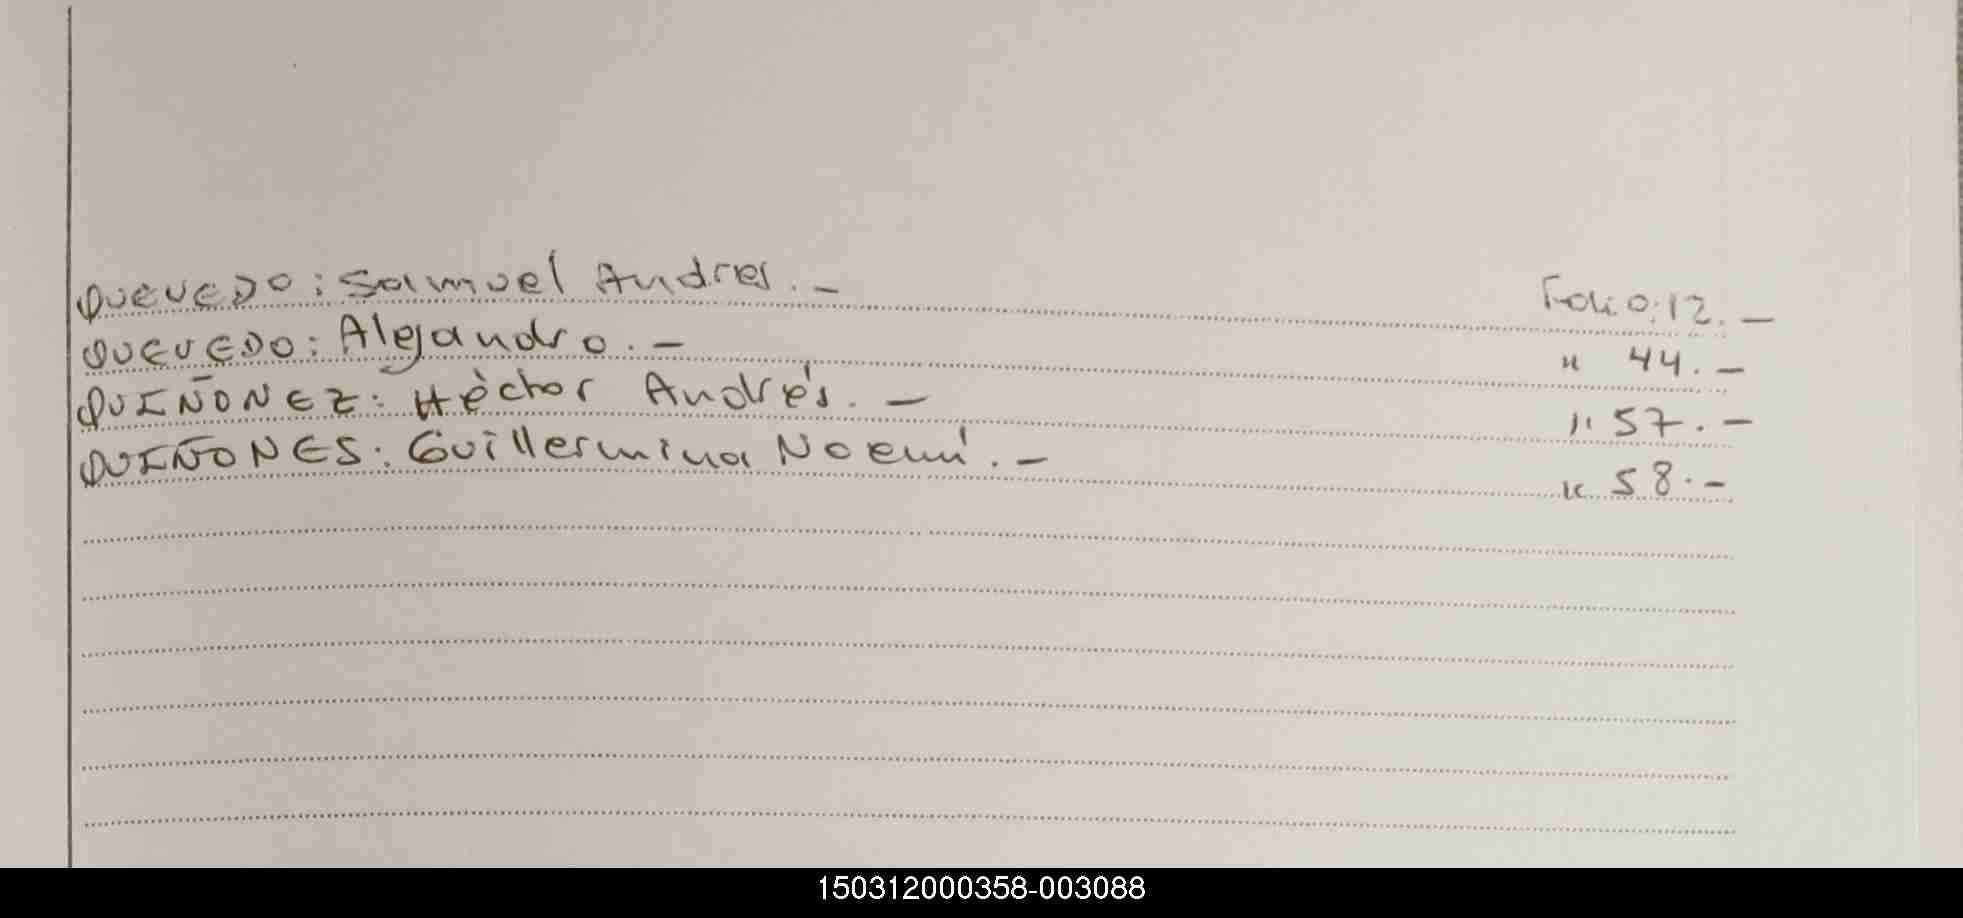 QUEVEDO: Samuel Andres.- Folio:12.-
QUEVEDO: Alejandro.- " 44.-
QUIÑONEZ: Héctor Andrés.- " 57.-
QUIÑONES: Guillermina Noemí.- " 58.-
150312000358-003088